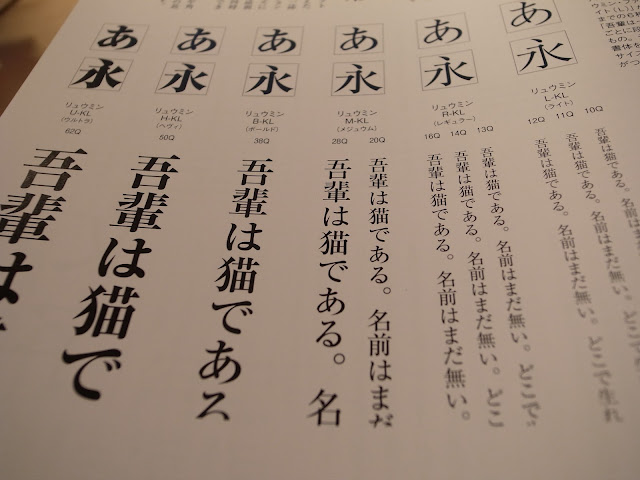 あ
永
リュウミン
U-KL
(ウルトラ)
62Q
吾輩は
あ
永
リュウミン
H-KL
(ヘヴィ)
50Q
吾輩は猫で
あ
永
リュウミン
B-KL
(ボールド)
38Q
吾輩は猫である
あ
永
リュウミン
M-KL
(メジュウム)
28Q
20Q
吾輩は猫である。名
吾輩は猫である。名前はまだ
あ
永
リュウミン
R-KL
(レギュラー)
16Q
14Q
13Q
吾輩は猫である。名前はまだ無い。
吾輩は猫である。名前はまだ無い。どこ
吾輩は猫である。名前はまだ無い。どこで
あ
永
リュウミン
L-KL
(ライト)
12Q
11Q
10Q
吾輩は猫である。名前はまだ無い。どこで
吾輩は猫である。名前はまだ無い。どこで生れ
吾輩は猫である。名前はまだ無い。どこで